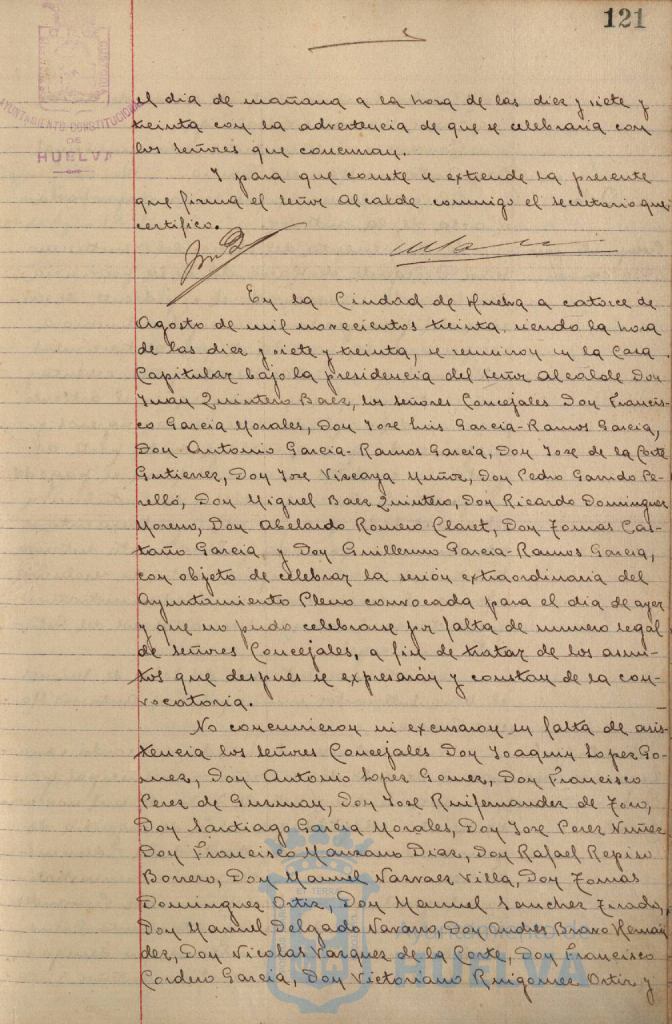 121
AYUNTAMIENTO CONSTITUCIONAL
DE
HUELVA
el dia de mañana a la hora de las diez y siete y
treinta con la advertencia de que se celebraria con
los señores que concurran.
Y para que conste se extiende la presente
que firma el señor Alcalde conmigo el secretario que
certifico.
En la Ciudad de Huelva a catorce de
Agosto de mil novecientos treinta, siendo la hora
de las diez y siete y treinta, se reunieron en la Casa
Capitular bajo la presidencia del señor Alcalde Don
Juan Quintero Baez, los señores Concejales Don Francis-
co Garcia Morales, Don Jose Luis Garcia-Ramos Garcia,
Don Antonio Garcia-Ramos Garcia, Don Jose de la Corte
Gutierrez, Don Jose Viscaya Muñoz, Don Pedro Garrido Pe-
relló, Don Miguel Baez Quintero, Don Ricardo Dominguez
Moreno, Don Abelardo Romero Claret, Don Tomas Cas-
taño Garcia y Don Guillermo Garcia-Ramos Garcia,
con objeto de celebrar la sesión extraordinaria del
Ayuntamiento Pleno convocada para el dia de ayer
y que no pudo celebrarse por falta de numero legal
de señores Concejales, a fin de tratar de los asun-
tos que despues se expresarán y constan de la con-
vocatoria.
No concurrieron ni excusaron su falta de asis-
tencia los señores Concejales Don Joaquin Lopez Go-
mez, Don Antonio Lopez Gomez, Don Francisco
Perez de Guzman, Don Jose Ruifernandez de Toro,
Don Santiago Garcia Morales, Don Jose Perez Nuñez
Don Francisco Manzano Diaz, Don Rafael Repiso
Borrero, Don Manuel Narvaez Villa, Don Tomas
Dominguez Ortiz, Don Manuel Sanchez Tirado,
Don Manuel Delgado Navarro, Don Andres Bravo Hernan-
dez, Don Nicolas Vazquez de la Corte, Don Francisco
Cordero Garcia, Don Victoriano Ruigomez Ortiz y
HUELVA